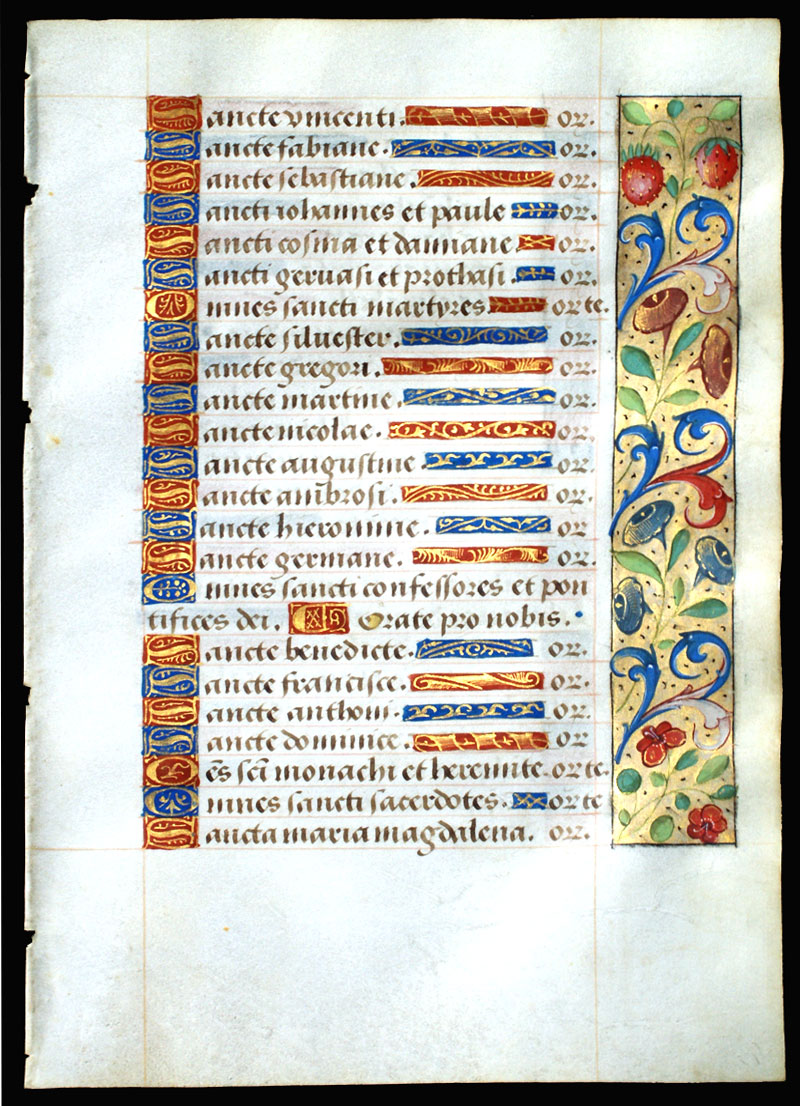 Sancte vincenti. or.
Sancte fabiane. or.
Sancte sebastiane. or.
Sancti iohannes et paule or.
Sancti cosma et damiane or.
Sancti geruasi et prothasi. or.
Omnes sancti martyres. orte.
Sancte siluester. or.
Sancte gregori. or.
Sancte martine. or.
Sancte nicolae. or.
Sancte augustine or.
Sancte ambrosi. or.
Sancte hieronime. or
Sancte germane. or.
Omnes sancti confessores et pon
tifices dei. Orate pro nobis.
Sancte benedicte. or.
Sancte francisce. or.
Sancte anthoni. or.
Sancte dominice. or
Oēs scī monachi et heremite. orte.
Omnes sancti sacerdotes. orte
Sancta maria magdalena. or.